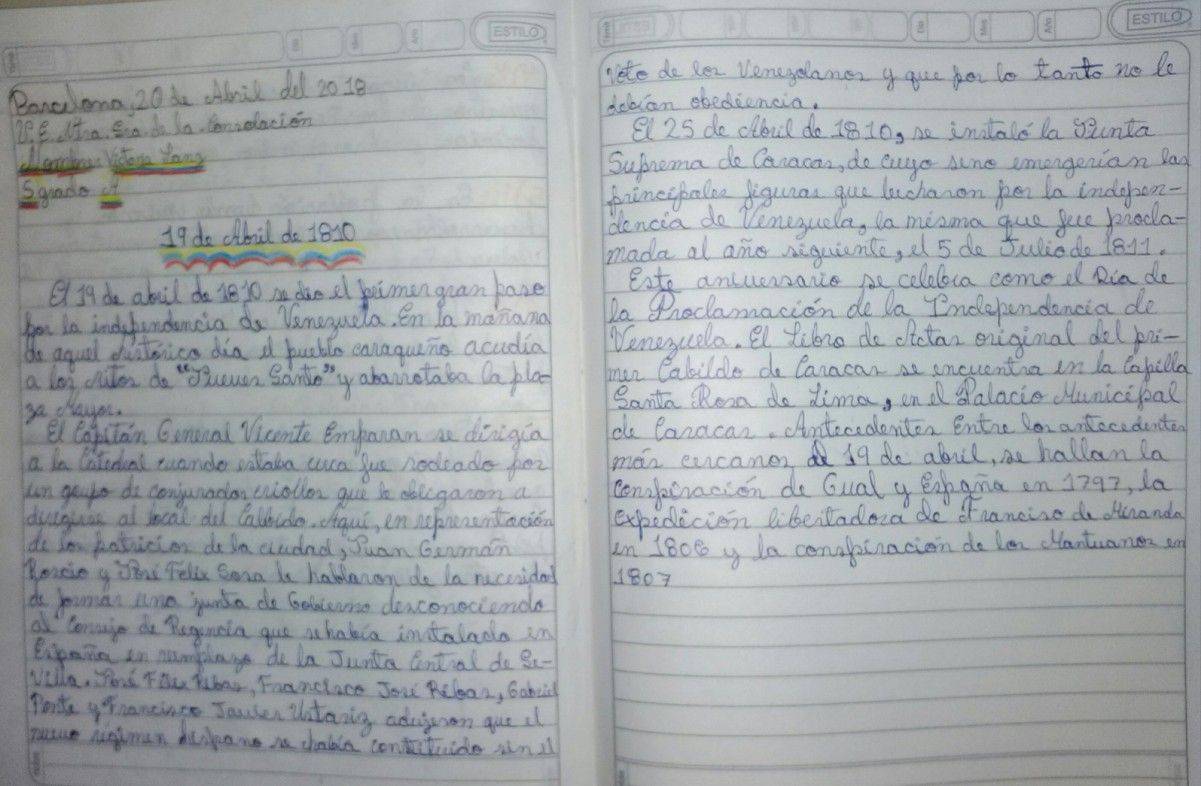 ESTILO
Barcelona, 20 de Abril del 2018
U.E. Ntra. Sra de la Consolación
Nombre: Victoria Lanz
5 grado A
19 de Abril de 1810
El 19 de abril de 1810 se dio el primer gran paso
por la independencia de Venezuela. En la mañana
de aquel histórico día el pueblo caraqueño acudía
a los ritos de "Jueves Santo" y abarrotaba la pla-
za Mayor.
El Capitán General Vicente Emparan se dirigía
a la Catedral cuando estaba cerca fue rodeado por
un grupo de conjurados criollos que le obligaron a
dirigirse al local del Calbido. Aquí, en representación
de los patricios de la ciudad, Juan Germán
Roscio y José Félix Sosa le hablaron de la necesidad
de formar una junta de Gobierno desconociendo
al Consejo de Regencia que se había instalado en
España en remplazo de la Junta Central de Se-
villa. José Félix Ribas, Francisco José Ribas, Gabriel
Ponte y Francisco Javier Ustariz adujeron que el
nuevo régimen hispano se había contituido sin el
ESTILO
Voto de los Venezolanos y que por lo tanto no le
debían obediencia.
El 25 de Abril de 1810, se instaló la Junta
Suprema de Caracas, de cuyo seno emergerían las
principales figuras que lucharon por la indepen-
dencia de Venezuela, la misma que fue procla-
mada al año siguiente, el 5 de Julio de 1811.
Este aniversario se celebra como el Día de
la Proclamación de la Independencia de
Venezuela. El Libro de Actas original del pri-
mer Cabildo de Caracas se encuentra en la Capilla
Santa Rosa de Lima, en el Palacio Municipal
de Caracas. Antecedentes Entre los antecedentes
más cercanos al 19 de abril, se hallan la
Conspiración de Gual y España en 1797, la
Expedición libertadora de Franciso de Miranda
en 1806 y la conspiración de los Mantuanos en
1807